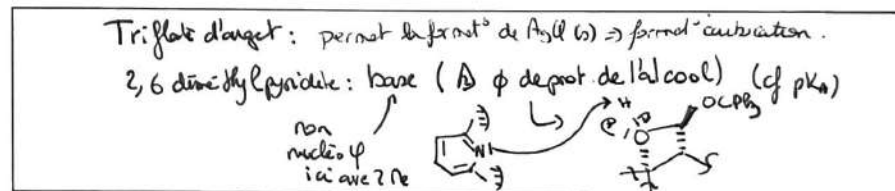 Triflate d'argent : permet la format° de AgCl (s) => format° carbocation.
2,6 diméthylpyridine : base (⚠ φ deprot. de l'alcool) (cf pKA)
non
nucléoφ
ici avec 2 Me
N
H
⊕
O
OCPh3